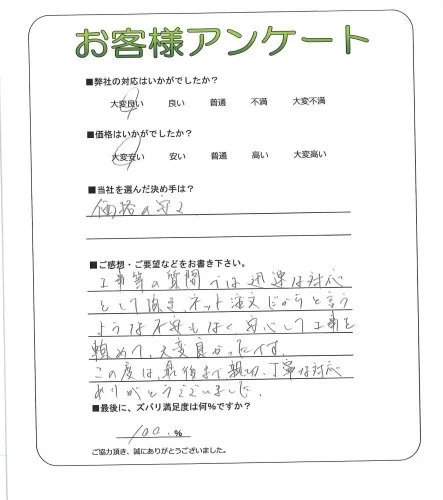 お客様アンケート
■弊社の対応はいかがでしたか?
大変良い 良い 普通 不満 大変不満
■価格はいかがでしたか?
大変安い 安い 普通 高い 大変高い
■当社を選んだ決め手は?
価格の安さ
■ご感想・ご要望などをお書き下さい。
工事等の質問では迅速な対応
をして頂き、ネット注文だからと言う
ような不安もなく安心して工事を
頼めて、大変良かったです。
この度は、最後まで親切、丁寧な対応
ありがとうございました。
■最後に、ズバリ満足度は何%ですか?
100.%
ご協力頂き、誠にありがとうございました。